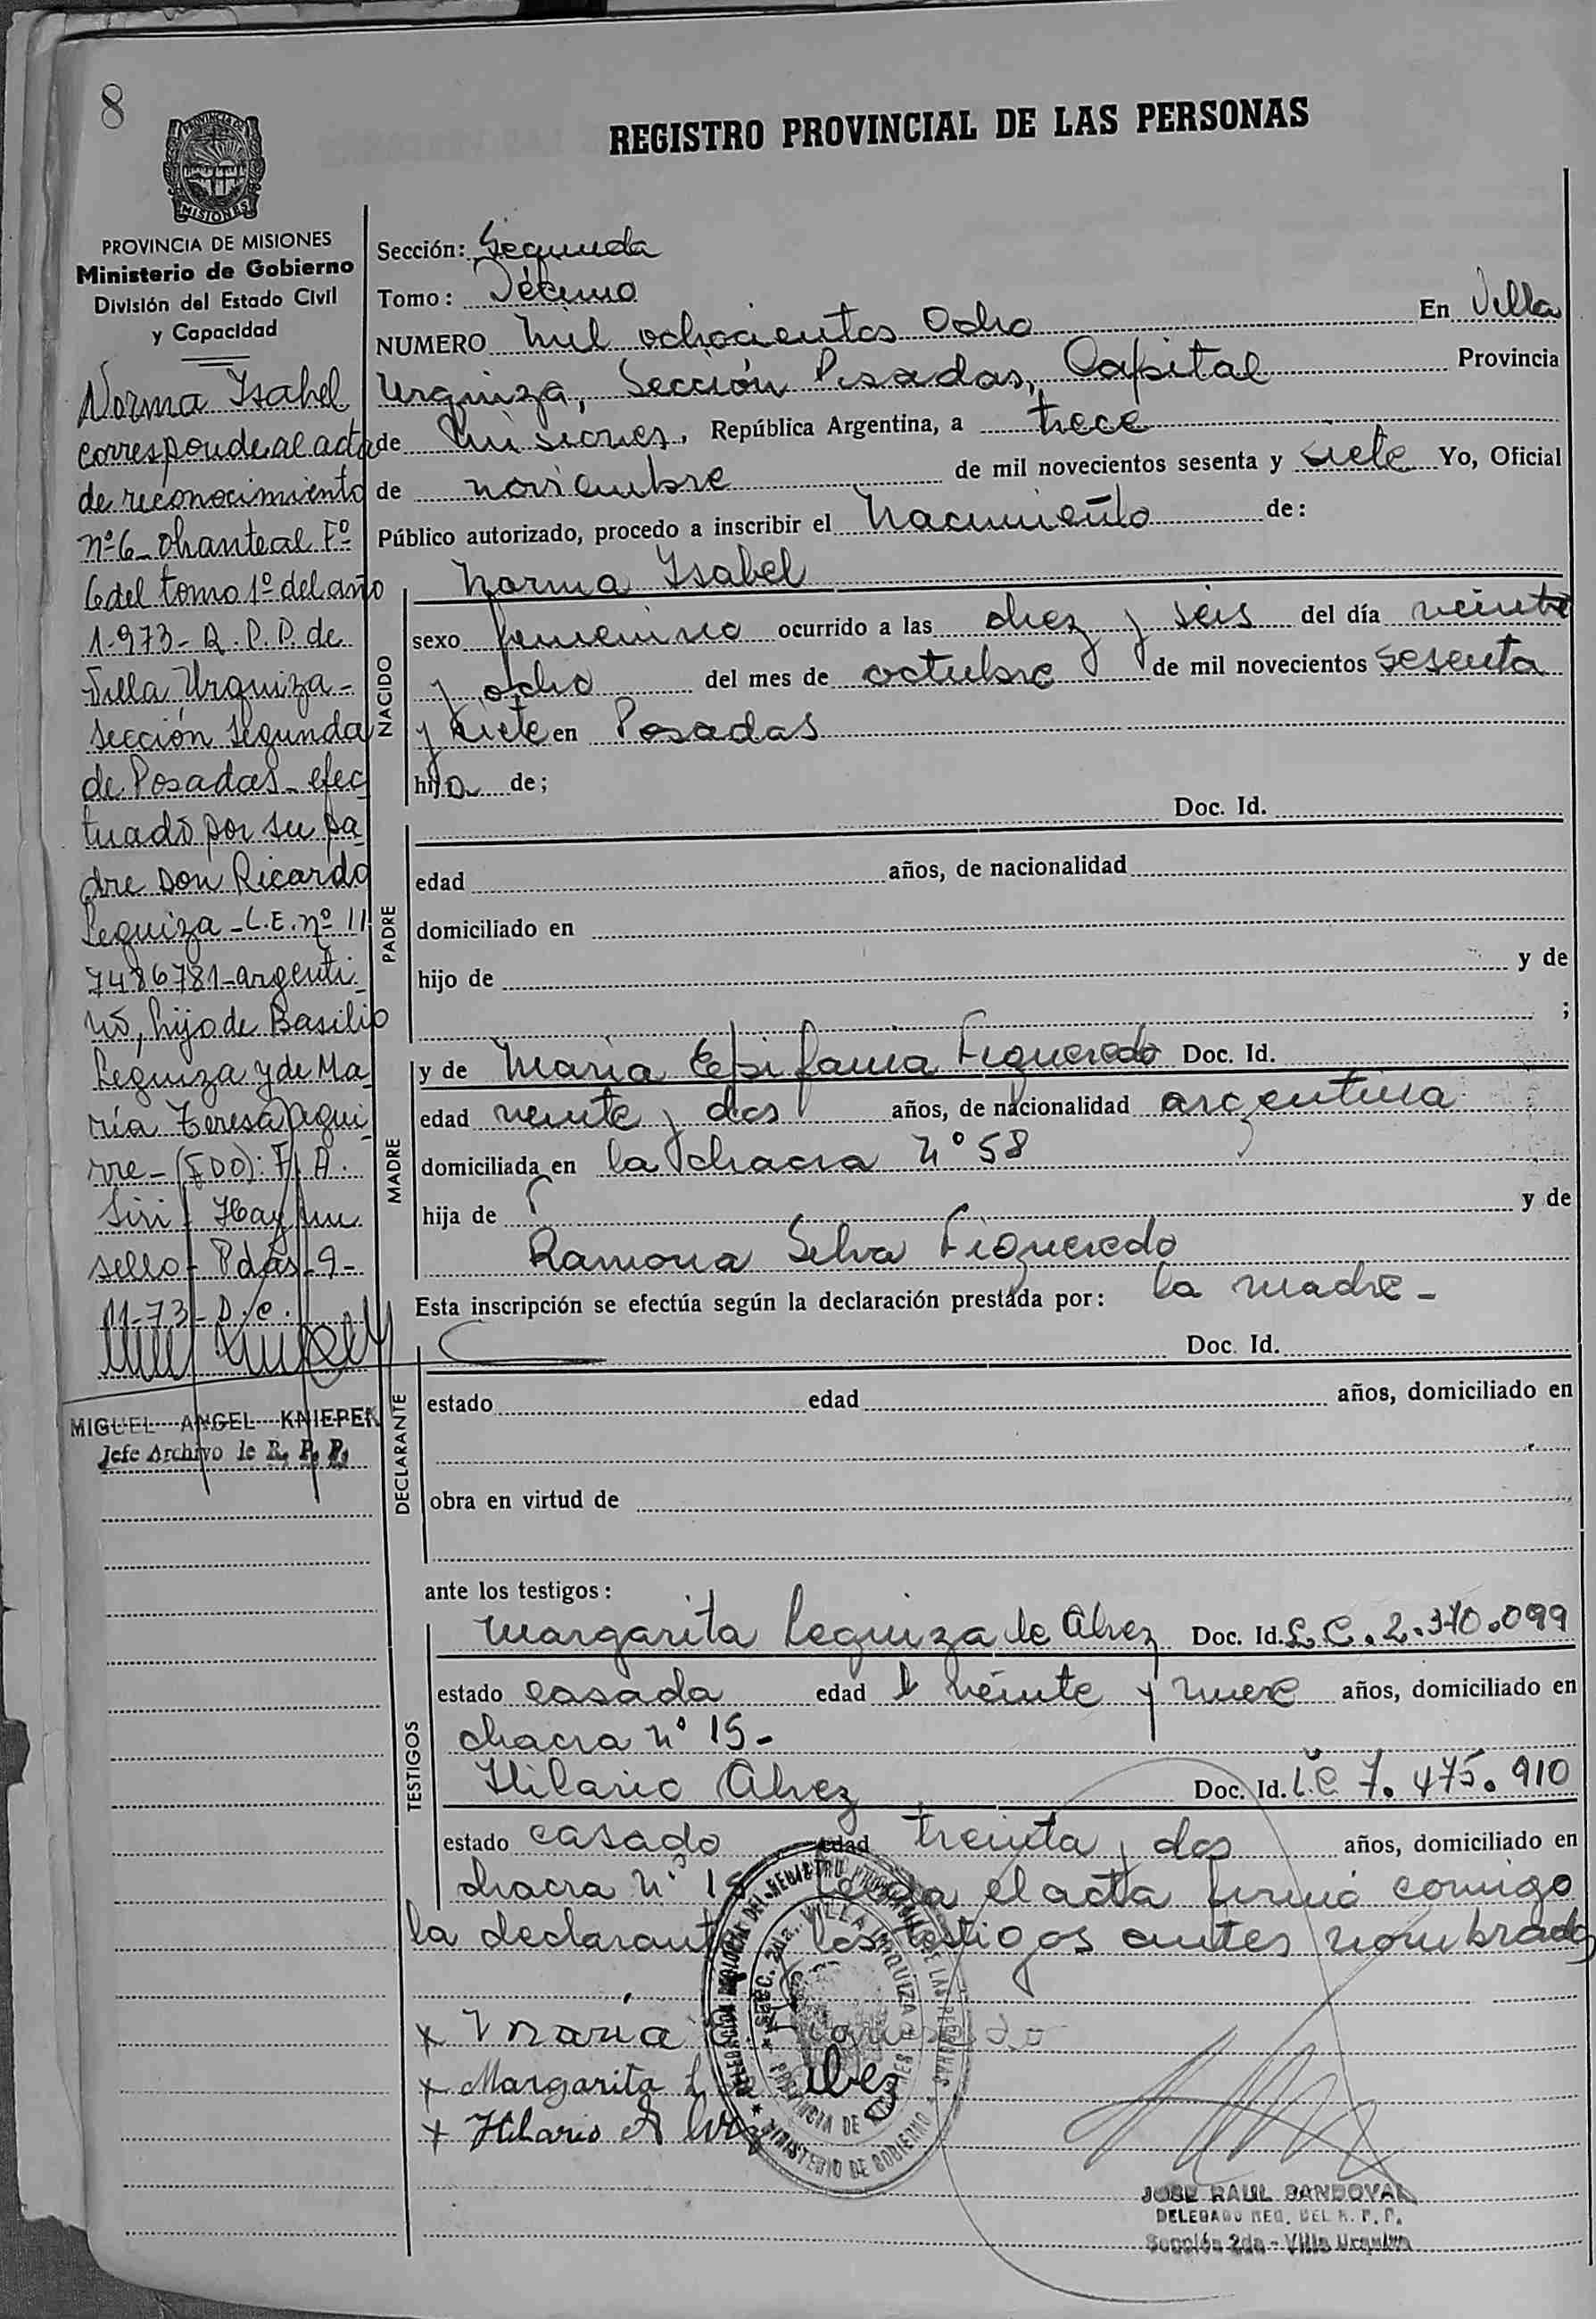 8
REGISTRO PROVINCIAL DE LAS PERSONAS
PROVINCIA DE
MISIONES
PROVINCIA DE MISIONES
Ministerio de Gobierno
División del Estado Civil
y Capacidad
Norma Ysabel
corresponde al acta
de reconocimiento
nº 6- obrante al Fº
6 del tomo 1º del año
1.973- R.P.P. de
Villa Urquiza-
sección segunda
de Posadas- efec
tuado por su pa
dre Don Ricardo
Leguiza - L.E. nº 11
7486781- argenti
no, hijo de Basilio
Leguiza y de Ma
ría Teresa Aqui
rre- (FDO): F. A.
Siri- Hay un
sello- Pdas- 9-
11-73- D.C.
MIGUEL ANGEL KNIEPER
Jefe Archivo de R. P. P.
Sección: Segunda
Tomo: Décimo
NUMERO Mil ochocientos Ocho En Villa
Urquiza, Sección Posadas, Capital Provincia
de Misiones, República Argentina, a trece
de noviembre de mil novecientos sesenta y siete Yo, Oficial
Público autorizado, procedo a inscribir el Nacimiento de:
Norma Ysabel
NACIDO
sexo femenino ocurrido a las diez y seis del día veinte
y ocho del mes de octubre de mil novecientos sesenta
y siete en Posadas
hija de;
PADRE
Doc. Id.
edad años, de nacionalidad
domiciliado en
hijo de y de
;
MADRE
y de María Epifania Figueredo Doc. Id.
edad veinte y dos años, de nacionalidad argentina
domiciliada en la chacra nº 58
hija de y de
Ramona Selva Figueredo
Esta inscripción se efectúa según la declaración prestada por: la madre -
DECLARANTE
Doc. Id.
estado edad años, domiciliado en
obra en virtud de
ante los testigos:
TESTIGOS
Margarita Leguiza de Alvez Doc. Id. L.C. 2.370.099
estado casada edad veinte y nueve años, domiciliado en
chacra nº 15-
Hilario Alvez Doc. Id. L.E 7.475.910
estado casado edad treinta y dos años, domiciliado en
chacra nº 15 Leída el acta firmó comigo
la declarante y los testigos antes nombrados
x María Figueredo
x Margarita L de Alvez
x Hilario Alvez
DELEGACION REGIONAL DEL REGISTRO PROVINCIAL DE LAS PERSONAS
MINISTERIO DE GOBIERNO
SEC. 2da. VILLA URQUIZA
PROVINCIA DE MISIONES
JOSE RAUL SANDOVAL
DELEGADO REG. DEL R. P. P.
Sección 2da - Villa Urquiza